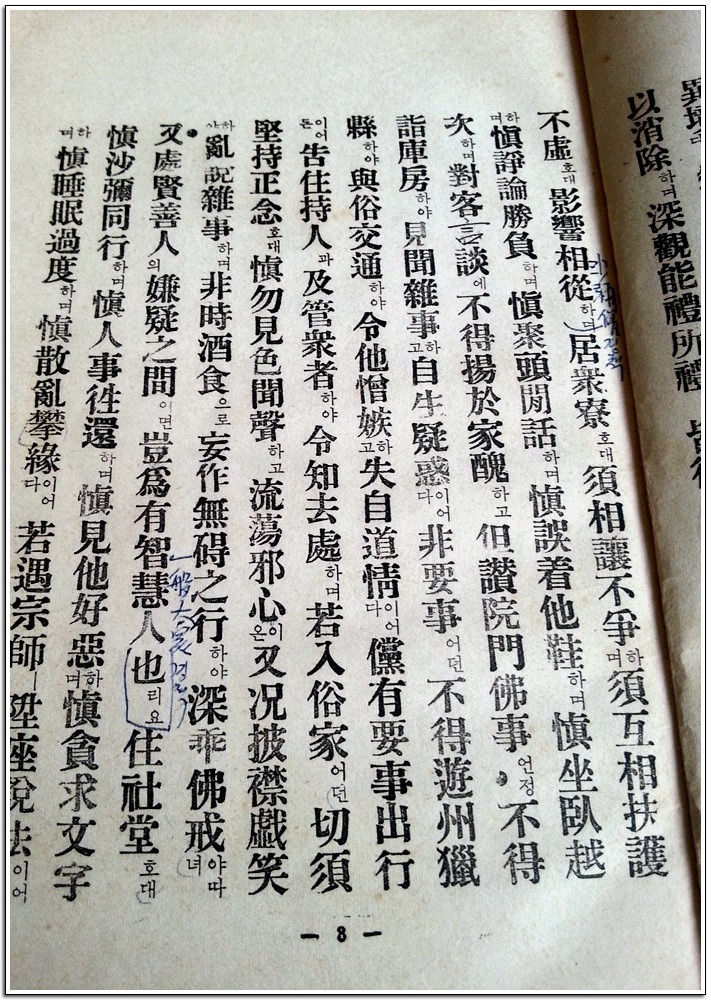 以消除하며深觀能禮所禮
不虛호대影響相從하며居衆寮호대須相讓不爭하며須互相扶護
하며愼諍論勝負하며愼聚頭閒話하며愼誤着他鞋하며愼坐臥越
次하며對客言談에不得揚於家醜하고但讚院門佛事언정不得
詣庫房하야見聞雜事하고自生疑惑이어다非要事어던不得遊州獵
縣하야與俗交通하야令他憎嫉하고失自道情이어다儻有要事出行
이어든告住持人과及管衆者하야令知去處하며若入俗家어던切須
堅持正念호대愼勿見色聞聲하고流蕩邪心이온又况披襟戱笑
하야亂說雜事하며非時酒食으로妄作無碍之行하야深乖佛戒야따녀
又處賢善人의嫌疑之間이면豈爲有智慧人也리요住社堂호대
愼沙彌同行하며愼人事徃還하며愼見他好惡하며愼貪求文字
하며愼睡眠過度하며愼散亂攀緣이어다若遇宗師ㅣ陞座說法이어
— 8 —